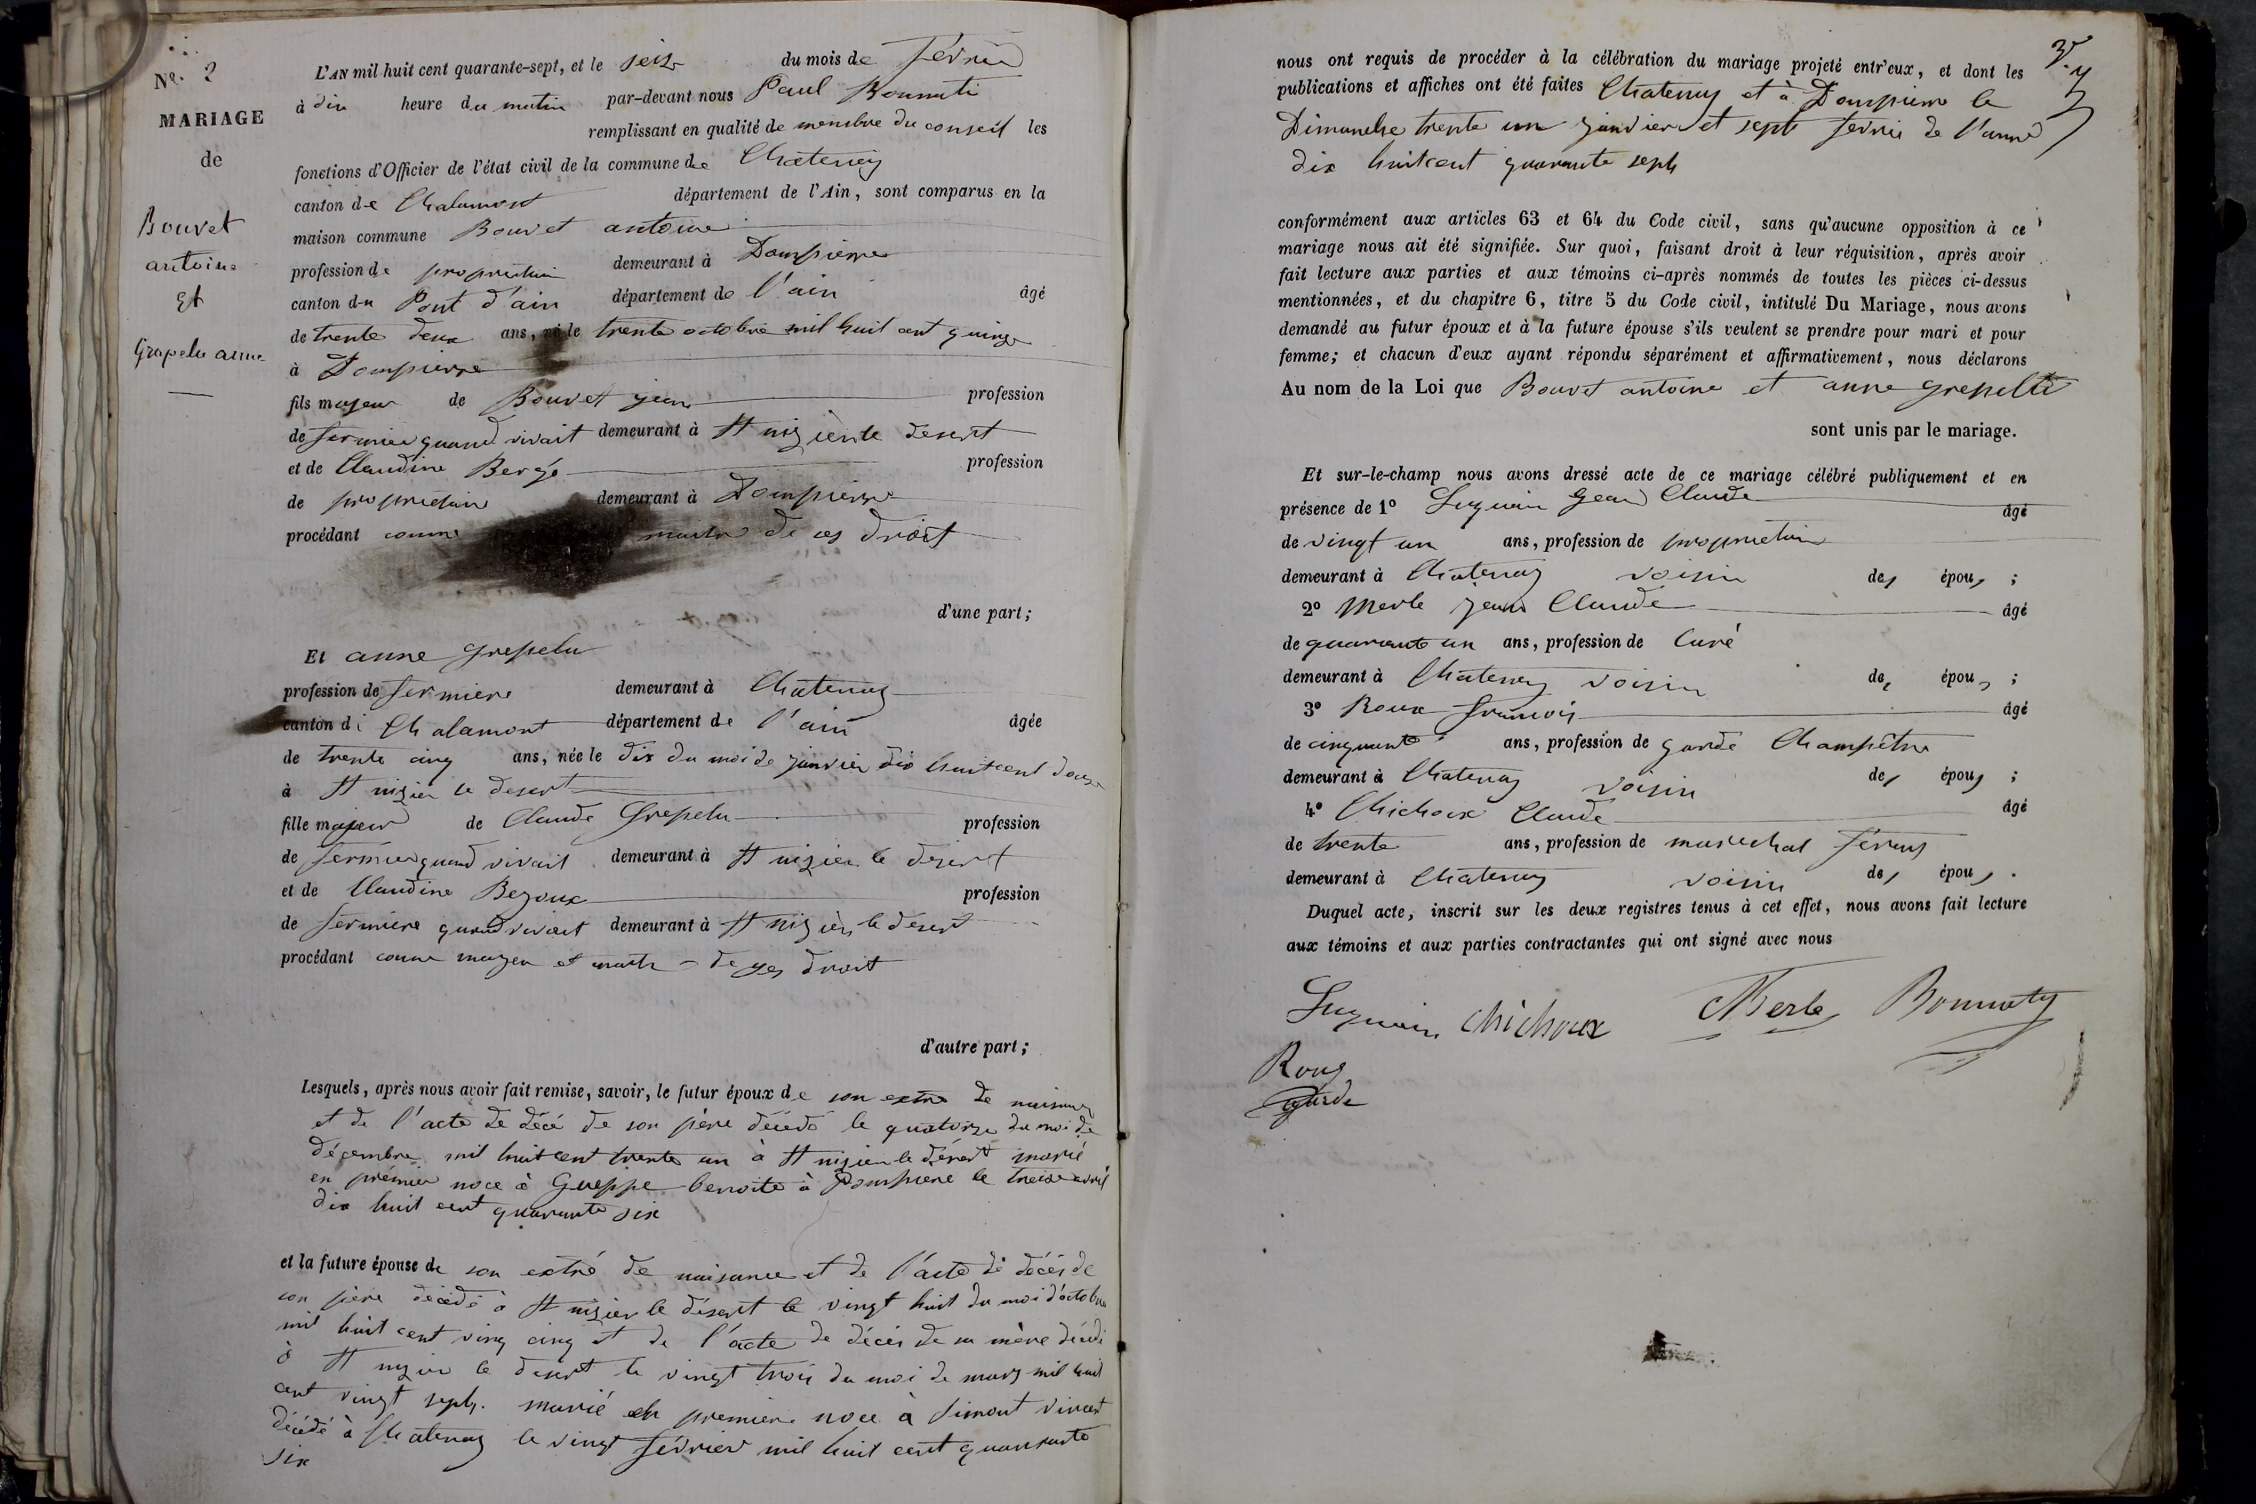 N.º 2
MARIAGE
de
Bouvet
antoine
Et
Grepelu anne
L'AN mil huit cent quarante-sept, et le seize du mois de Février
à dix heure du matin par-devant nous Paul Bonnati
remplissant en qualité de membre du conseil les
fonctions d'Officier de l'état civil de la commune de Chatenay
canton de Chalamont département de l'Ain, sont comparus en la
maison commune Bouvet antoine
profession de proprietain demeurant à Dompierre
canton du Pont d'ain département de l'ain âgé
de trente deux ans, né le trente octobre mil huit cent quinze
à Dompierre
fils majeur de Bouvet jean profession
de fermier quand vivait demeurant à St nizièr le desert
et de Claudine Bergé profession
de proprietain demeurant à Dompierre
procédant comme maitre de ces droit
d'une part;
Et anne grepelu
profession de fermiere demeurant à Chatenay
canton de Chalamont département de l'ain âgée
de trente cinq ans, née le dix du moi de janvier dix huit cent douze
à St nizier le desert
fille majeur de Claude Grepelu profession
de fermier quand vivait demeurant à St nizier le desert
et de Claudine Bezoux profession
de fermiere quand vivait demeurant à St nizièr le desert
procédant comme majeu et maitr de ses droit
d'autre part;
Lesquels, après nous avoir fait remise, savoir, le futur époux de son extré de naisance
et de l'acte de décé de son père décédé le quatorze du moi de
décembre mil huit cent trente un à St nizier le désert marié
en prémier noce à Gueppe benoite à Dompiere le treize avril
dix huit cent quarante six
et la future épouse de son extré de naisance et de l'acte de décés de
son père décédé à St nizier le désert le vingt huit du moi d'octobre
mil huit cent ving cinq et de l'acte de décés de sa mère décédé
à St nizier le desert le vingt trois du moi de mars mil huit
cent vingt sept. marié en premiere noce à Simont vincent
décédé à Chatenay le vingt février mil huit cent quarante
six
nous ont requis de procéder à la célébration du mariage projeté entr'eux, et dont les
publications et affiches ont été faites Chatenay et à Dompierre le
Dimanche trente un janvier et sept fevrier de l'anné
dix huit cent quarante sept
conformément aux articles 63 et 64 du Code civil, sans qu'aucune opposition à ce
mariage nous ait été signifiée. Sur quoi, faisant droit à leur réquisition, après avoir
fait lecture aux parties et aux témoins ci-après nommés de toutes les pièces ci-dessus
mentionnées, et du chapitre 6, titre 5 du Code civil, intitulé Du Mariage, nous avons
demandé au futur époux et à la future épouse s'ils veulent se prendre pour mari et pour
femme; et chacun d'eux ayant répondu séparément et affirmativement, nous déclarons
Au nom de la Loi que Bouvet antoine et anne grepelu
sont unis par le mariage.
Et sur-le-champ nous avons dressé acte de ce mariage célébré publiquement et en
présence de 1º Luquain Jean Claude âgé
de vingt un ans, profession de proprietain
demeurant à Chatenay voisin des époux;
2º Merle jean Claude âgé
de quarante un ans, profession de Curé
demeurant à Chatenay voisin des époux;
3º Roux francois âgé
de cinquante ans, profession de garde Champêtre
demeurant à Chatenay voisin des époux;
4º Chichoux Claude âgé
de trente ans, profession de marechal férant
demeurant à Chatenay voisin des époux.
Duquel acte, inscrit sur les deux registres tenus à cet effet, nous avons fait lecture
aux témoins et aux parties contractantes qui ont signé avec nous
Luquain Chichoux Merle Bonnaty
Roux
garde